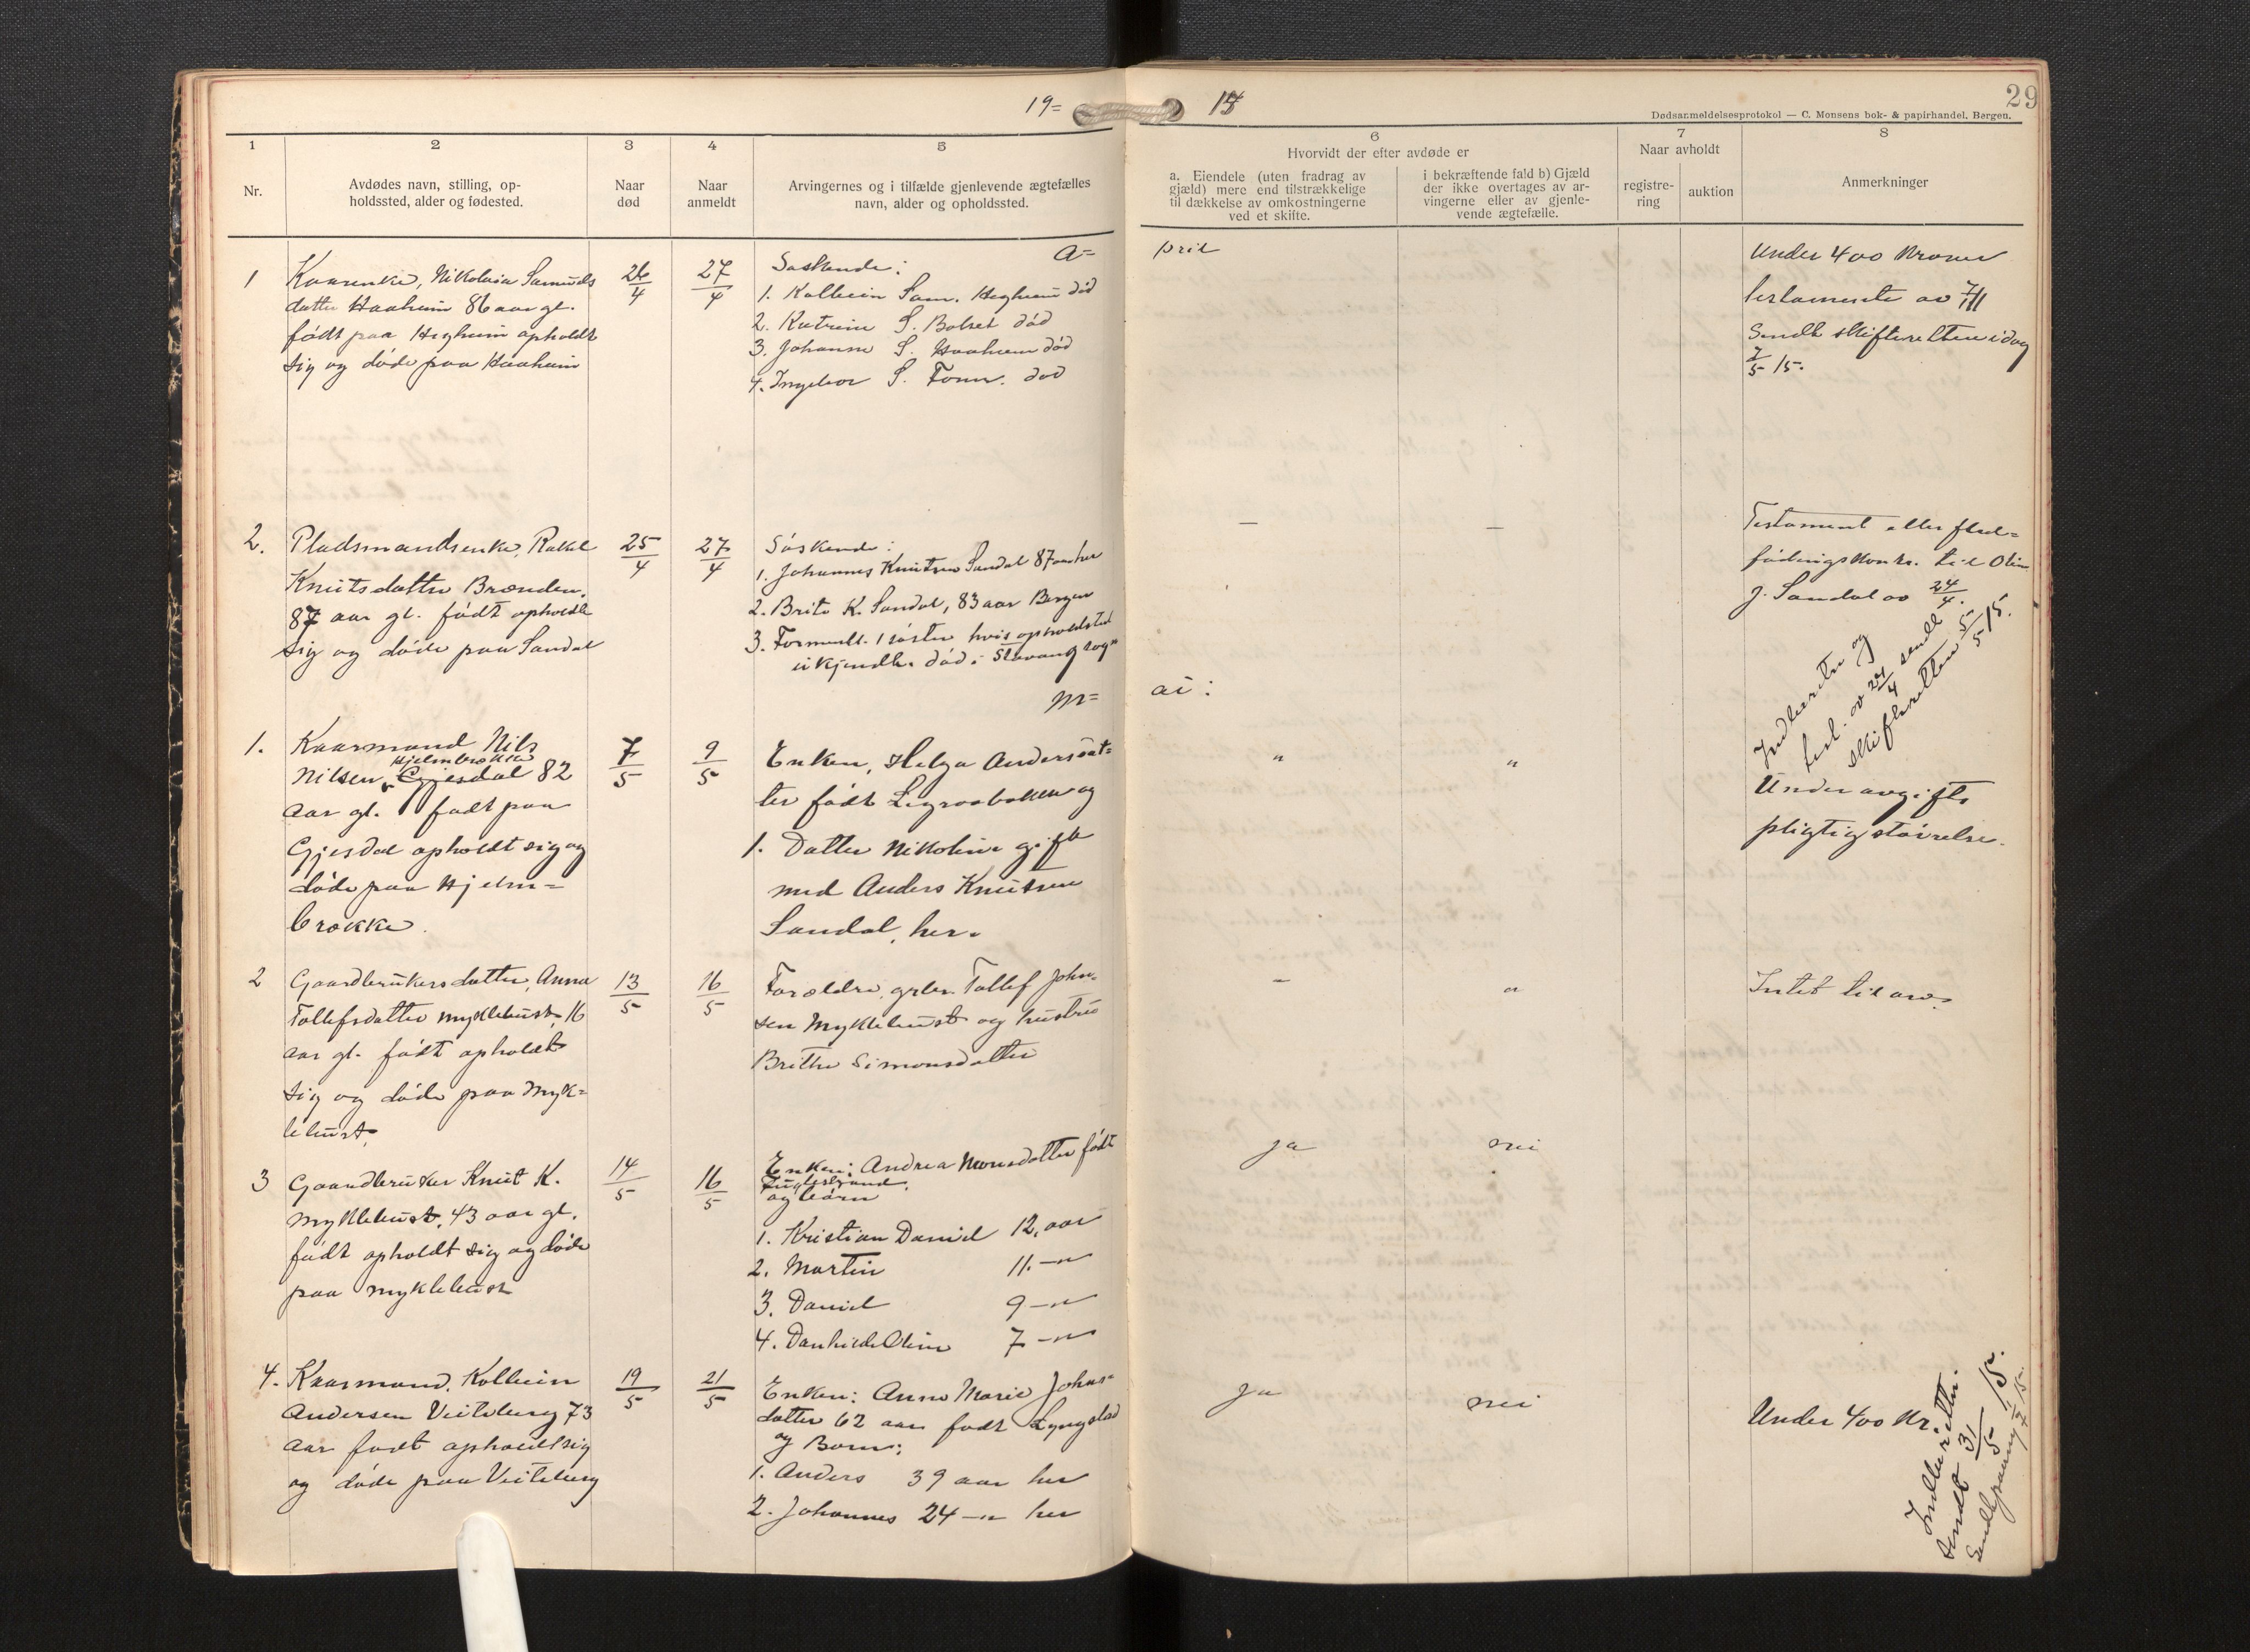 19=
15
29
Dødsanmeldelsesprotokol — C. Monsens bok- & papirhandel, Bergen.
1
2
3
4
5
6
7
8
Nr.
Avdødes navn, stilling, op-
holdssted, alder og fødested.
Naar
død
Naar
anmeldt
Arvingernes og i tilfælde gjenlevende ægtefælles
navn, alder og opholdssted.
Hvorvidt der efter avdøde er
a. Eiendele (uten fradrag av
gjæld) mere end tilstrækkelige
til dækkelse av omkostningerne
ved et skifte.
i bekræftende fald b) Gjæld
der ikke overtages av ar-
vingerne eller av gjenle-
vende ægtefælle.
Naar avholdt
registre-
ring
auktion
Anmerkninger
A=
pril
1
Kaarenke, Nikolaia Samuels
datter Haaheim 86 aar gl.
født paa Hegheim opholdt
sig og døde paa Haaheim
26/4
27/4
Søskende:
1. Kolbein Sam. Hegheim død
2. Katrine S. Bolset død
3. Johanne S. Haaheim død
4. Ingebor S. Fonn. død
Under 400 Kroner
testamente av
Sendt skifteretten idag
7/5 15.
2.
Pladsmandsenke, Rakel
Knutsdatter Brænden,
87 aar gl. født opholdt
sig og døde paa Sandal
25/4
27/4
Søskende:
1. Johannes Knutsen Sandal 87 aar her
2. Brite K. Sandal, 83 aar Bergen
3. Formentl. 1 søster hvis opholdsted
ukjendt. død i Stavang sogn
—
—
Testament eller fled=
føringskontr. til Olin
J. Sandal av 24/4.
Indberetn og
test. av 24/4 sendt
skifteretten 5/5 15.
M=
ai:
1.
Kaarmand Nils
Hjelmbrække
Nilsen, Gjesdal 82
aar gl. født paa
Gjesdal opholdt sig og
døde paa Hjelm=
brække.
7/5
9/5
Enken, Helga Andersdat=
ter født Legraabakken og
1. Datter Nikoline gift
med Anders Knutsen
Sandal, her.
"
"
Under avgifts
pligtig størrelse.
2
Gaardbrukersdatter, Anna
Tollefsdatter Myklebust, 16
aar gl. født opholdt
sig og døde paa Myk=
lebust.
13/5
16/5
Forældre, grbr. Tollef John=
sen Myklebust og hustru
Brithe Simonsdatter
—
"
Intet til arv.
3
Gaardbruker Knut K.
Myklebust, 43 aar gl.
født opholdt sig og døde
paa Myklebust
14/5
16/5
Enken: Andrea Monsdatter født
og børn
1. Kristian Daniel 12 aar
2. Martin 11. —"
3. Daniel 9 —"
4. Danhilde Oline 7 —"
ja
nei
4.
Kaarmand, Kolbein
Andersen Veiteberg 73
aar født opholdt sig
og døde paa Veiteberg
19/5
21/5
Enken: Anne Marie Johns=
datter 62 aar født Lyngstad
og Børn:
1. Anders 39 aar her
2. Johannes 24 —" her
ja
nei
Under 400 Kr.
Indberetn.
sendt 31/5 15.